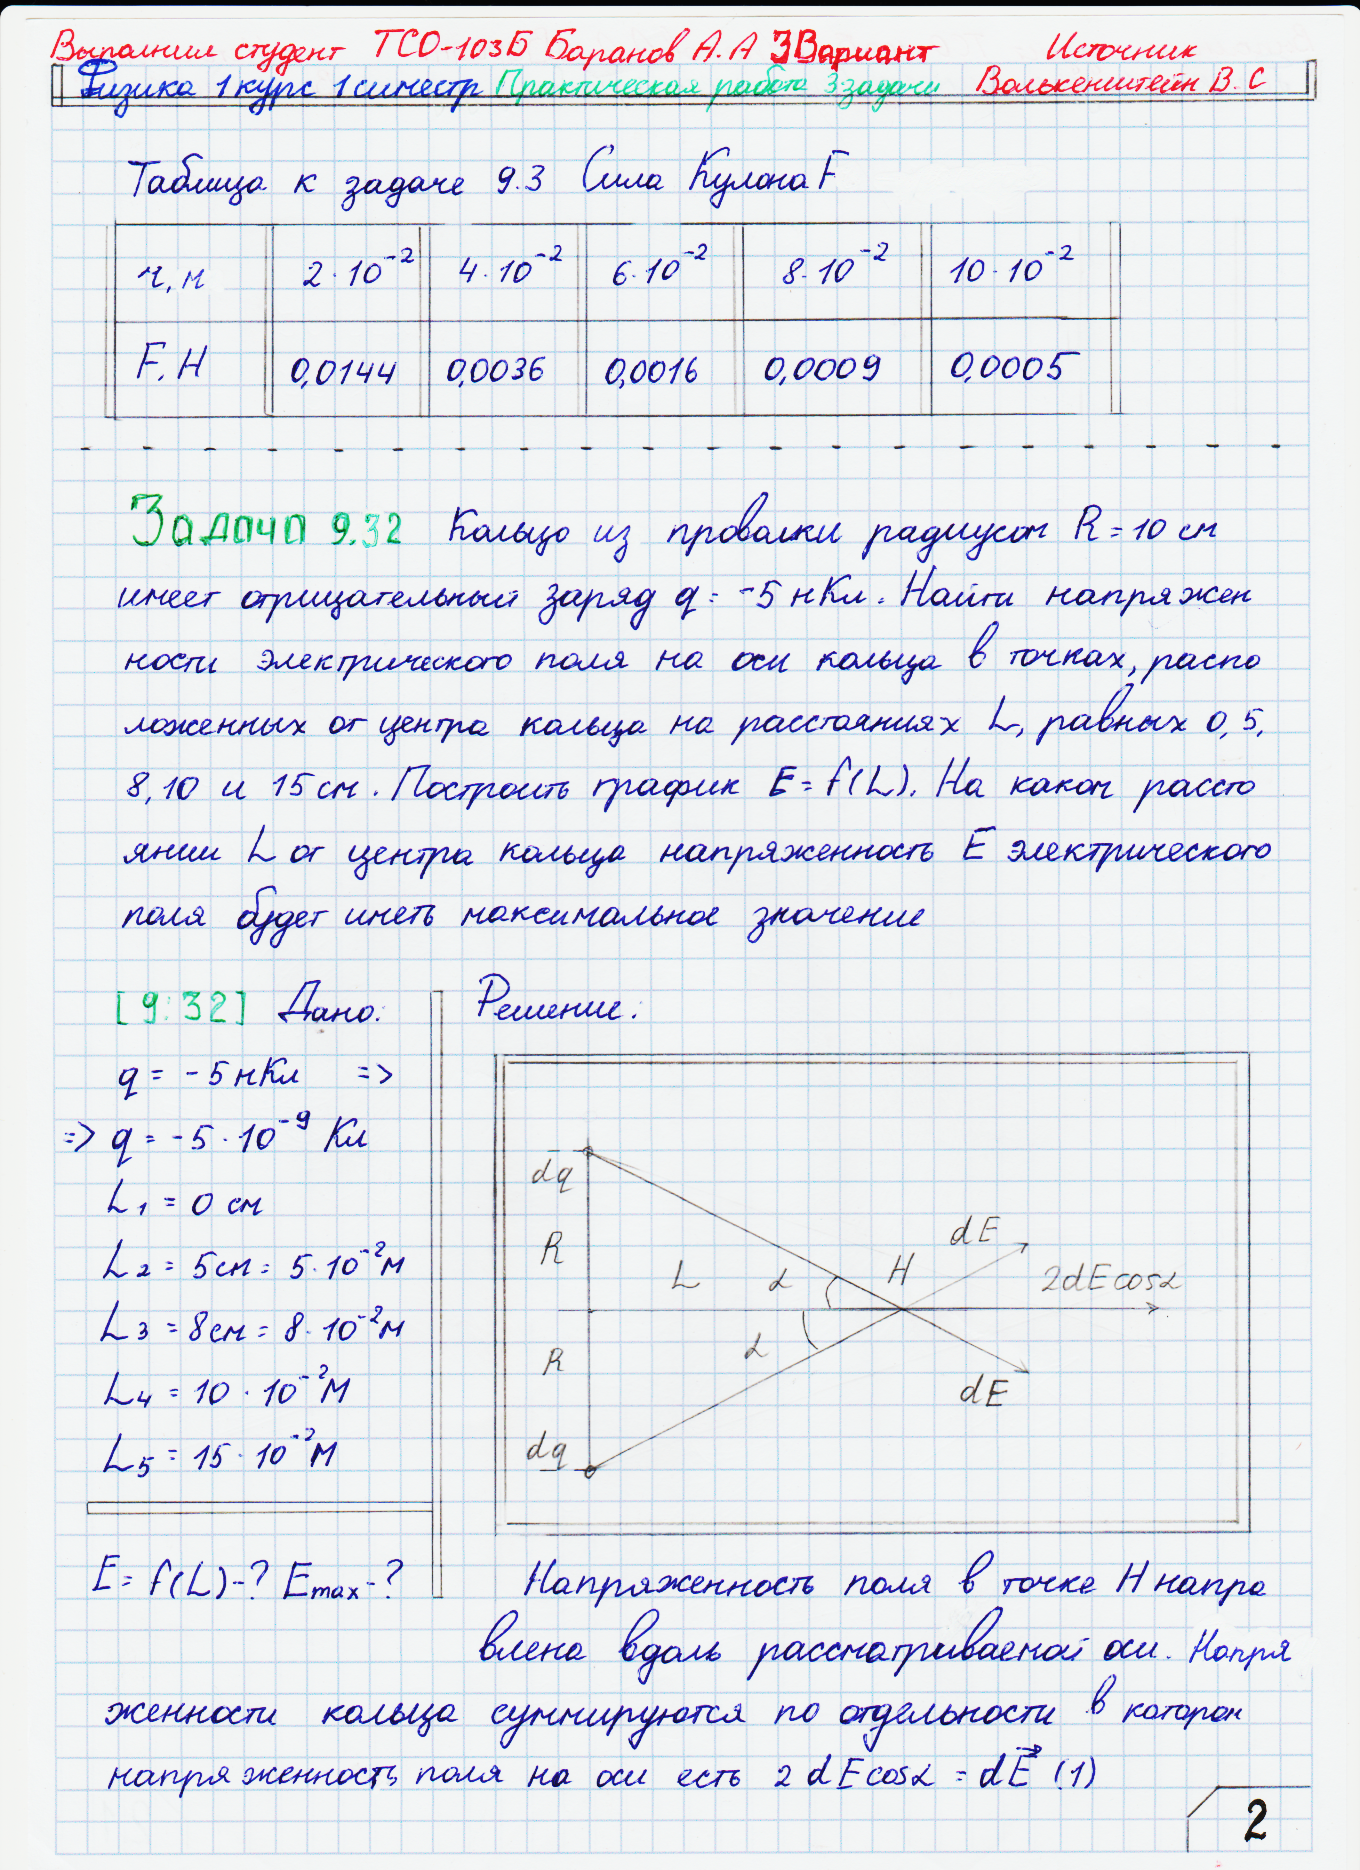 Выполнил студент ТСО-103Б Баранов А.А 3Вариант Источник
Физика 1 курс 1 симестр Практическая работа 3 задачи Волькенштейн В.С
Таблица к задаче 9.3 Сила Кулона F
r, м 2·10⁻² 4·10⁻² 6·10⁻² 8·10⁻² 10·10⁻²
F, Н 0,0144 0,0036 0,0016 0,0009 0,0005
Задача 9.32 Кольцо из проволки радиусом R = 10 см
имеет отрицательный заряд q = -5 нКл. Найти напряжен
ности электрического поля на оси кольца в точках, распо
ложенных от центра кольца на расстояниях L, равных 0, 5,
8, 10 и 15 см. Построить график E = f(L). На каком рассто
янии L от центра кольца напряженность E электрического
поля будет иметь максимальное значение
[9.32] Дано: Решение:
q = -5 нКл =>
=> q = -5 · 10⁻⁹ Кл
L₁ = 0 см
L₂ = 5см = 5·10⁻²м
L₃ = 8см = 8·10⁻²м
L₄ = 10 · 10⁻²М
L₅ = 15 · 10⁻²М
E = f(L)-? Emax-?
dq
R
L
α
H
dE
2dEcosα
R
α
dE
dq
Напряженность поля в точке H напра
влена вдоль рассматриваемой оси. Напря
женности кольца суммируются по отдельности в котором
напряженность поля на оси есть 2 dEcosα = dE⃗ (1)
2